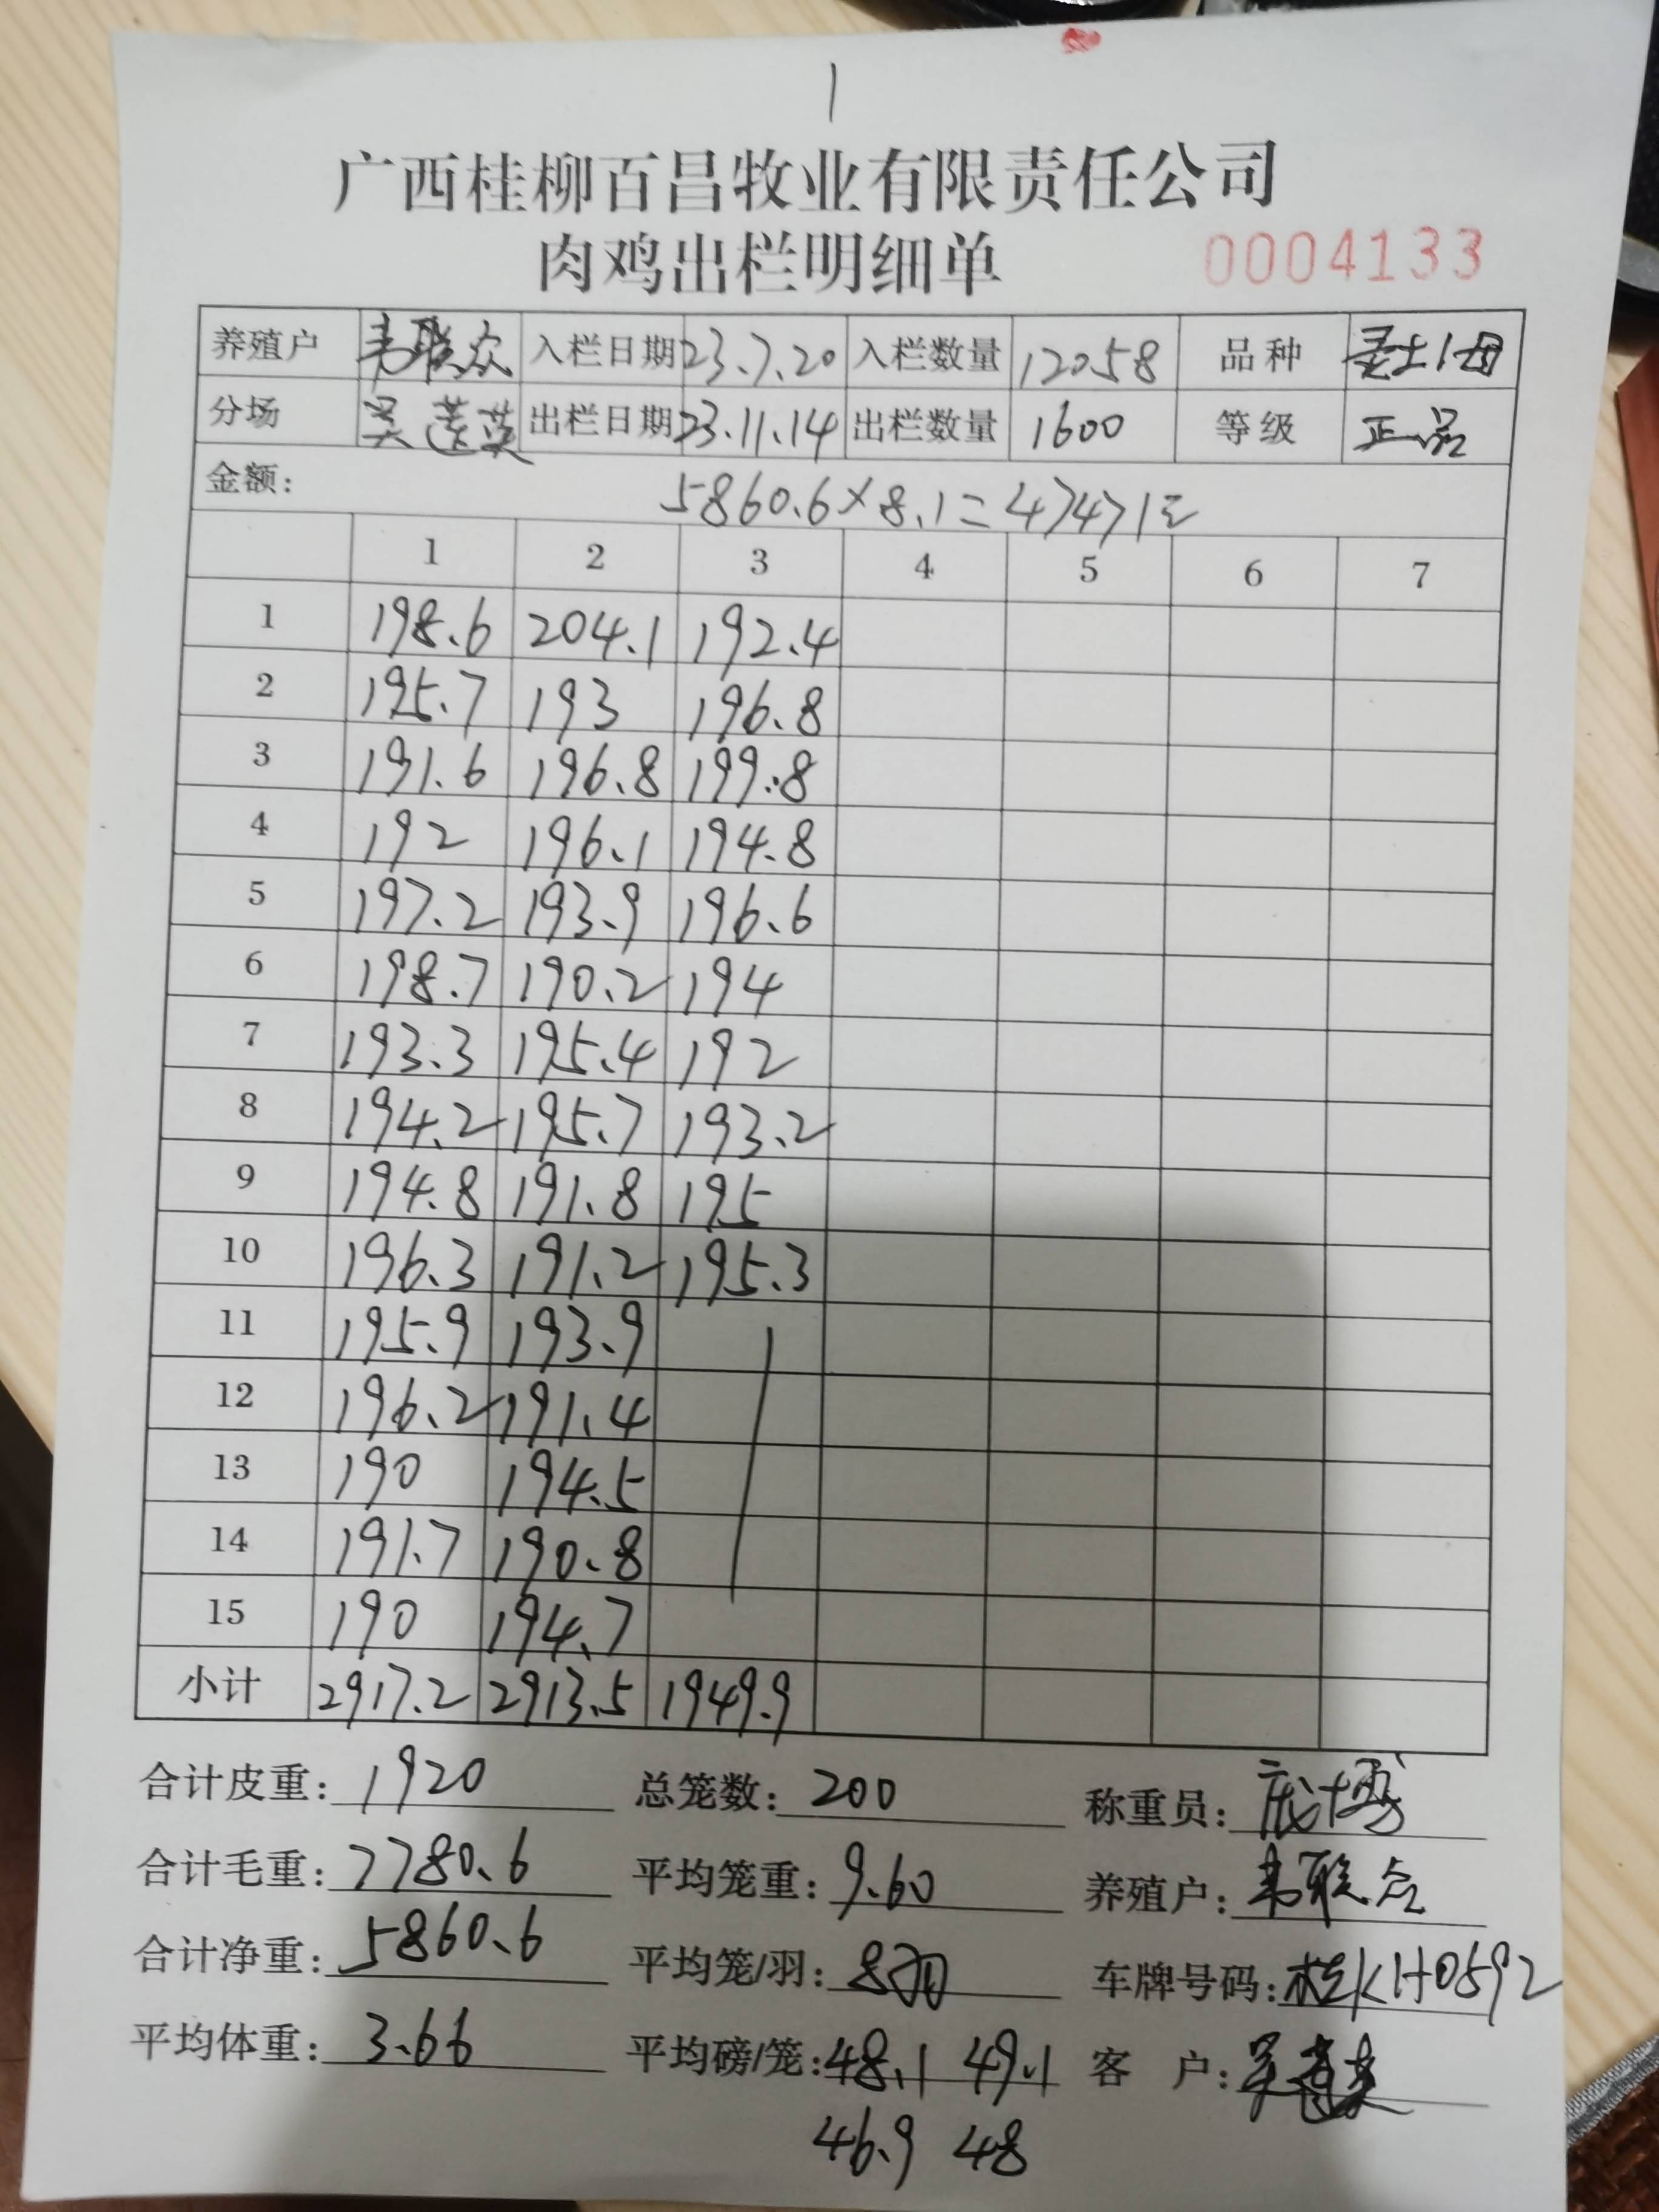 1
广西桂柳百昌牧业有限责任公司
肉鸡出栏明细单 0004133
养殖户 韦联众 入栏日期 23.7.20 入栏数量 12058 品种 土1母
分场 吴莲英 出栏日期 23.11.14 出栏数量 1600 等级 正品
金额: 5860.6×8.1=47471元
1 2 3 4 5 6 7
1 198.6 204.1 192.4
2 195.7 193 196.8
3 191.6 196.8 199.8
4 192 196.1 194.8
5 197.2 193.9 196.6
6 198.7 190.2 194
7 193.3 195.4 192
8 194.2 195.7 193.2
9 194.8 191.8 195
10 196.3 191.2 195.3
11 195.9 193.9
12 196.2 191.4
13 190 194.5
14 191.7 190.8
15 190 194.7
小计 2917.2 2913.5 1949.9
合计皮重: 1920 总笼数: 200 称重员:
合计毛重: 7780.6 平均笼重: 9.60 养殖户: 韦联众
合计净重: 5860.6 平均笼/羽: 8羽 车牌号码: 桂KH0592
平均体重: 3.66 平均磅/笼: 48.1 49.1 客 户: 吴莲英
46.9 48